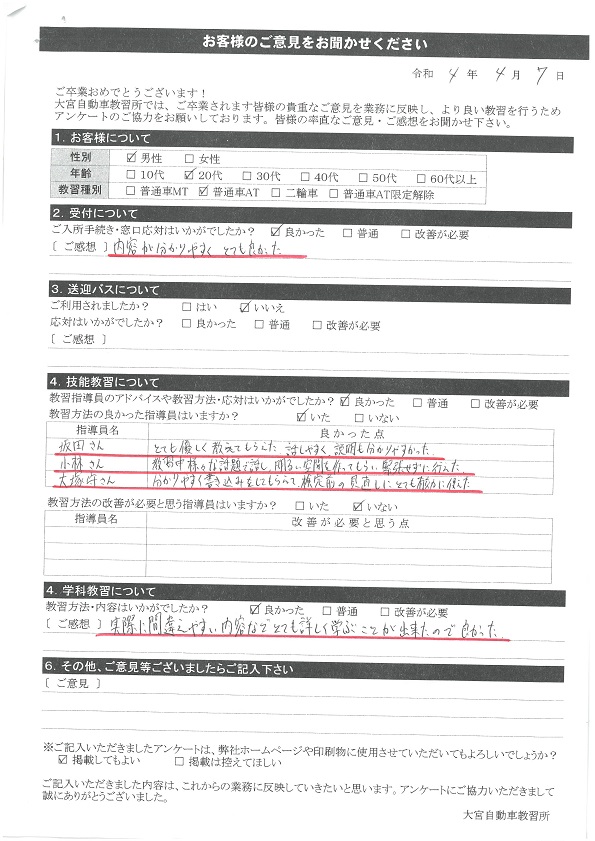 お客様のご意見をお聞かせください
令和 4 年 4 月 7 日
ご卒業おめでとうございます！
大宮自動車教習所では、ご卒業されます皆様の貴重なご意見を業務に反映し、より良い教習を行うため
アンケートのご協力をお願いしております。皆様の率直なご意見・ご感想をお聞かせ下さい。
1. お客様について
性別 ☑ 男性 □ 女性
年齢 □ 10代 ☑ 20代 □ 30代 □ 40代 □ 50代 □ 60代以上
教習種別 □ 普通車MT ☑ 普通車AT □ 二輪車 □ 普通車AT限定解除
2. 受付について
ご入所手続き・窓口応対はいかがでしたか？ ☑ 良かった □ 普通 □ 改善が必要
[ ご感想 ] 内容が分かりやすく とても良かった
3. 送迎バスについて
ご利用されましたか？ □ はい ☑ いいえ
応対はいかがでしたか？ □ 良かった □ 普通 □ 改善が必要
[ ご感想 ]
4. 技能教習について
教習指導員のアドバイスや教習方法・応対はいかがでしたか？ ☑ 良かった □ 普通 □ 改善が必要
教習方法の良かった指導員はいますか？ ☑ いた □ いない
指導員名 良かった点
坂田さん とても優しく教えてもらえた 話しやすく、説明も分かりやすかった
小林さん 教習中様々な話題で話し、明るい空間を作ってもらい緊張せずに行えた
大塚守さん 分かりやすく書き込みをしてもらえて、検定前の見直しにとても役に使えた
教習方法の改善が必要と思う指導員はいますか？ □ いた ☑ いない
指導員名 改善が必要と思う点
4. 学科教習について
教習方法・内容はいかがでしたか？ ☑ 良かった □ 普通 □ 改善が必要
[ ご感想 ] 実際に間違えやすい内容などとても詳しく学ぶことが出来たので良かった
6. その他、ご意見等ございましたらご記入下さい
[ ご意見 ]
※ご記入いただきましたアンケートは、弊社ホームページや印刷物に使用させていただいてもよろしいでしょうか？
☑ 掲載してもよい □ 掲載は控えてほしい
ご記入いただきました内容は、これからの業務に反映していきたいと思います。アンケートにご協力いただきまして
誠にありがとうございました。
大宮自動車教習所